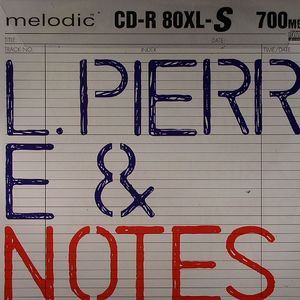 melodic™ CD-R 80XL-S 700MB
TITLE DATE
TRACK NO. INDEX TIME/DATE
L.PIERR
E &
NOTES